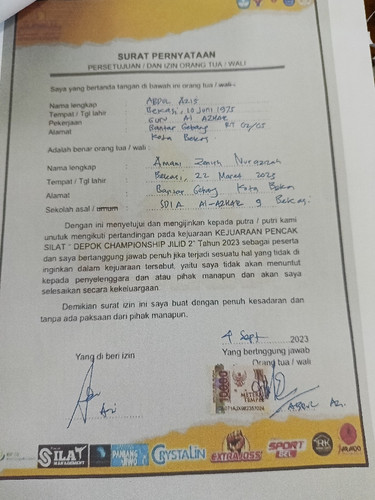 SURAT PERNYATAAN
PERSETUJUAN / DAN IZIN ORANG TUA / WALI
Saya yang bertanda tangan di bawah ini orang tua / wali :
Nama lengkap ABDUL AZIS
Tempat / Tgl lahir Bekasi, 10 Juni 1975
Pekerjaan GURU Al AZHAR
Alamat Bantar Gebang RT 02/05
Kota Bekasi
Adalah benar orang tua / wali :
Nama lengkap Amani
Tempat / Tgl lahir Bekasi, 22 Maret 2023
Alamat Bantar Gebang Kota Bekasi
Sekolah asal / umum SDIA Al-AZHAR 9 Bekasi
Dengan ini menyetujui dan mengijinkan kepada putra / putri kami
unutuk mengikuti pertandingan pada kejuaraan KEJUARAAN PENCAK
SILAT " DEPOK CHAMPIONSHIP JILID 2" Tahun 2023 sebagai peserta
dan saya bertanggung jawab penuh jika terjadi sesuatu hal yang tidak di
inginkan dalam kejuaraan tersebut, yaitu saya tidak akan menuntut
kepada penyelenggara dan atau pihak manapun dan akan saya
selesaikan secara kekeluargaan.
Demikian surat izin ini saya buat dengan penuh kesadaran dan
tanpa ada paksaan dari pihak manapun.
9 Sept 2023
Yang di beri izin
Yang bertnggung jawab
Orang tua / wali
10000
METERAI
TEMPEL
SILAT
MANAGEMENT
PANJANG
JIWO
CRYSTALIN
EXTRA JOSS
SPORT
RK